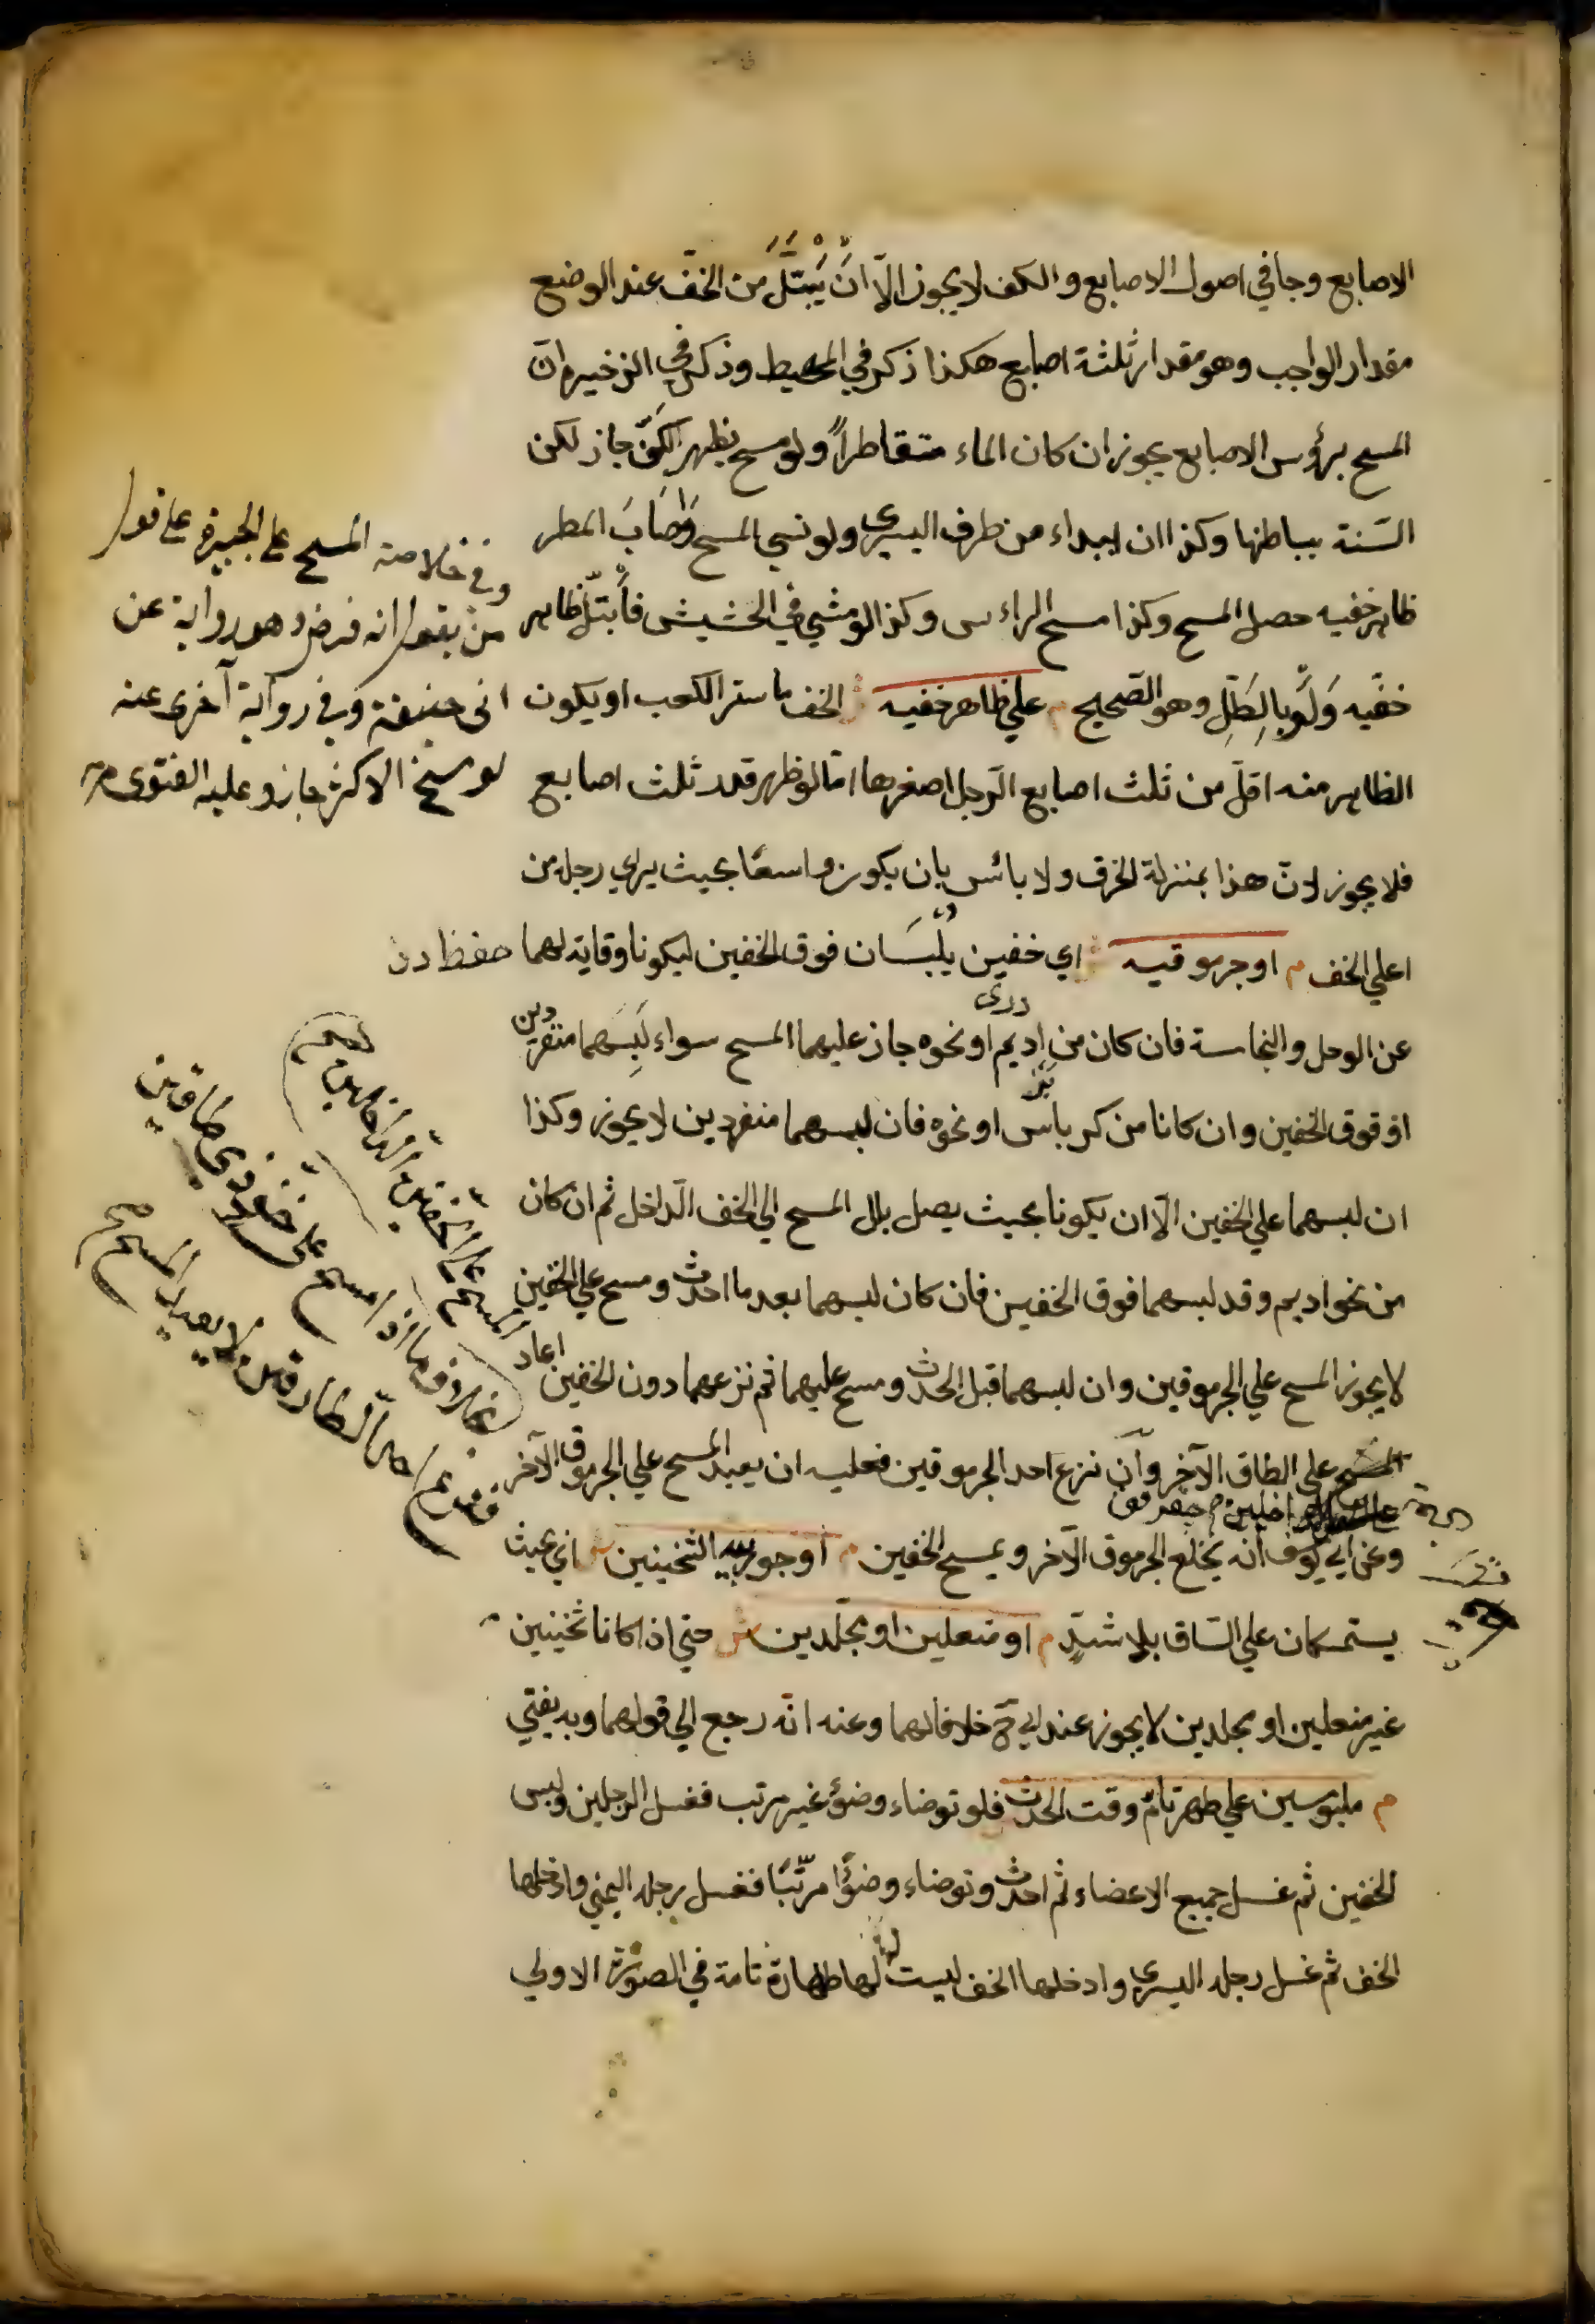 الاصابع وجافي اصول الاصابع والكف لا يجوز الّا انْ يَبْتَلَّ من الخفّ عند الوضع
مقدار الواجب وهو مقدار ثلثة اصابع هكذا ذكر في المحيط وذكر في الذخيرة انّ
المسح برؤس الاصابع يجوز ان كان الماء متقاطراً ولو مسح بظهر الكَفّ جاز لكن
السّنة بباطنها وكذا ان ابداء من طرف اليسرى ولو نسي المسح وَاَصَابَ المطر
ظاهر خفيه حصل المسح وكذا مسح الراءس وكذا لو مشي في الحشيش فأبتلّ ظاهر
خفّيه وَلَوْ بِالطّلِّ وهو الصّحيح م علي ظاهر خفيه ش الخف ما ستر الكعب او يكون
الظاهر منه اقلّ من ثلث اصابع الرّجل اصغرها امّا لو ظهر قدر ثلث اصابع
فلا يجوز لانّ هذا بمنزلة الخرق ولا بائس بان يكون واسعًا بحيث يري رجله من
اعلي الخف م او جرموقيه ش اي خفين يلبسَان فوق الخفين ليكونا وقاية لهما
عن الوحل والنجاسة فان كان من اديم او نحوه جاز عليهما المسح سواء لَبِسَهما منفردين
او فوق الخفين وان كانا من كرباس او نحوه فان لبسهما منفردين لا يجوز وكذا
ان لبسهما علي الخفين الّا ان يكونا بحيث يصل بلل المسح الي الخف الّداخل ثم ان كان
من نحو اديم وقد لبسهما فوق الخفين فان كان لبسهما بعد ما احدث ومسح علي الخفين
لا يجوز المسح علي الجرموقين وان لبسهما قبل الحدث ومسح عليهما ثم نزعهما دون الخفين اعاد
المسح علي الطاق الآخر وانّ نزع احد الجرموقين فعليه ان يعيد المسح علي الجرموق الآخر
وعن ابي يوسف انّه يخلع الجرموق الآخر ويمسح الخفين م او جوربيه الثخينين ش اي بحيث
يستمسكان علي السّاق بلا شدٍّ م او منعلين او مجلّدين ش حتي اذا كانا ثخينين
غير منعلين او مجلدين لا يجوز عند ابي ح خلافا لهما وعنه انّه رجع الي قولهما وبه يفتي
م ملبوسين علي طهر تامّ وقت الحدث فلو توضاء وضؤ غير مرتب فغسل الرجلين ولبس
الخفين ثم غسل جميع الاعضاء ثم احدث وتوضاء وضؤا مرتّبًا فغسل رجله اليمني وادخلها
الخف ثم غسل رجله اليسري وادخلها الخف ليست لها طهارة تامة في الصورة الاولي
وفي خلاصة المسح على الجبيرة على قول
من يقول انه فرض وهو رواية عن
ابى حنيفة وفي رواية آخرى عنه
لو مسح الاكثر جاز وعليه الفتوى